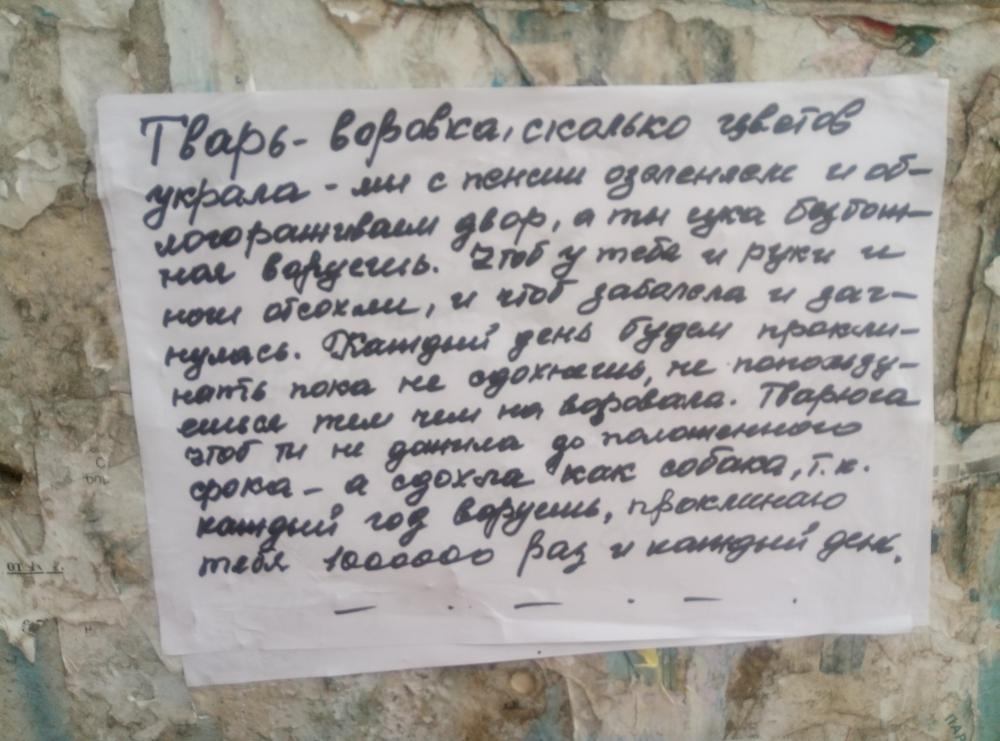 Тварь - воровка, сколько цветов
украла - мы с пенсии озеленяем и об-
логораживаем двор, а ты цука безбож-
ная воруешь. Чтоб у тебя и руки и
ноги отсохли, и чтоб заболела и заг-
нулась. Каждый день будем прокли-
нать пока не сдохнешь, не попользу-
ешься тем чем на воровала. Тварюга
чтоб ты не дожила до положенного
срока - а сдохла как собака, т.к.
каждый год воруешь, проклинаю
тебя 1000000 раз и каждый день.
— . — . — .